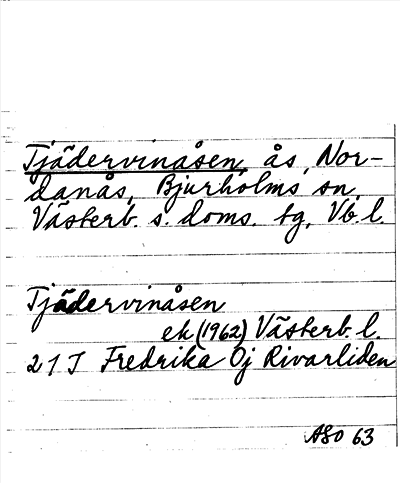 Tjädervinåsen, ås, Nor-
danås, Bjurholms sn,
Västerb. s. doms. tg, Vb.l.
Tjädervinåsen
ek (1962) Västerb. l.
21 J Fredrika Öj Rivarliden
ASO 63